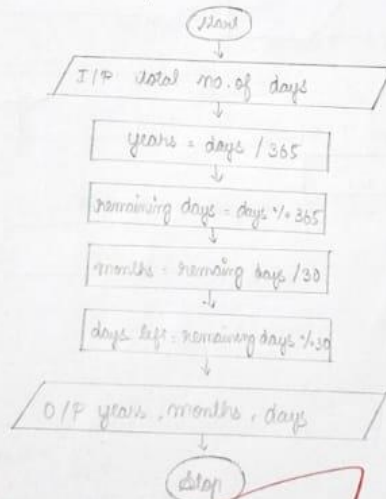 Start
I/P total no. of days
years = days / 365
remaining days = days % 365
months = remaing days / 30
days left = remaining days % 30
O/P years, months, days
Stop